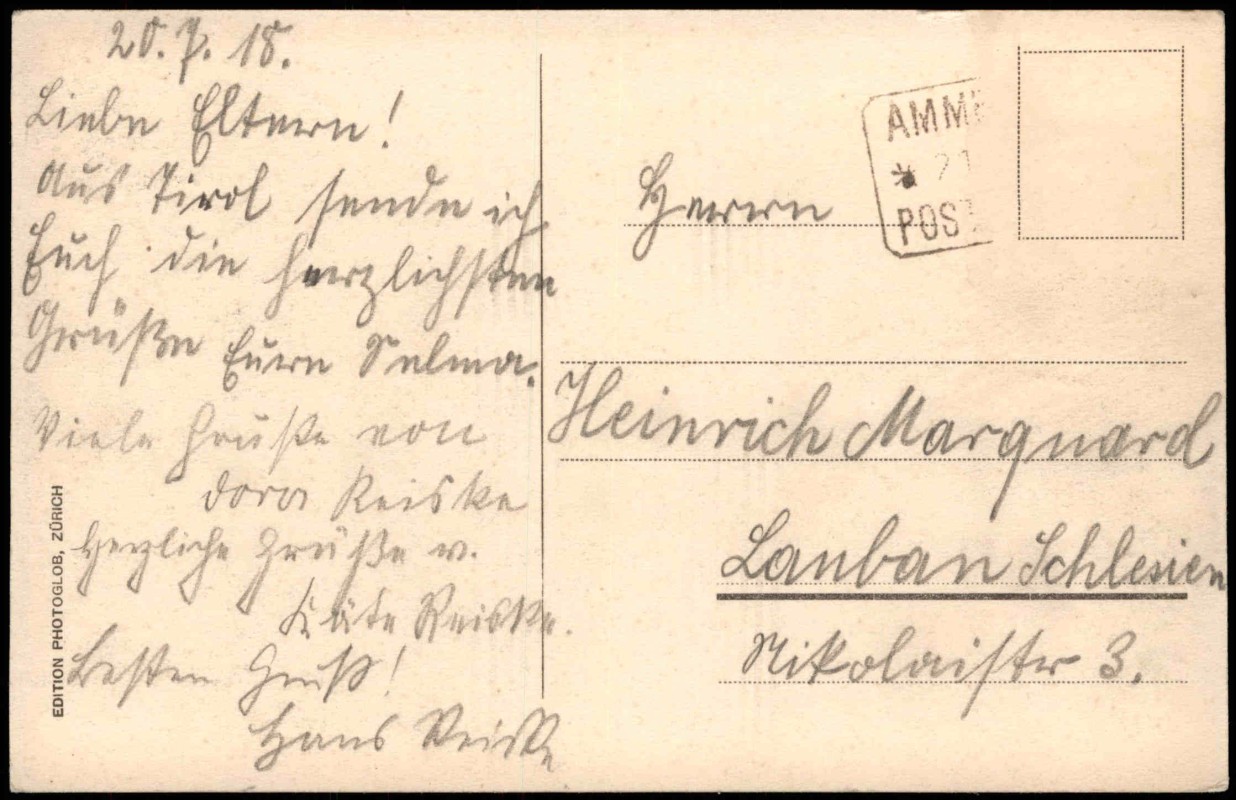 20. 7. 18.
Liebe Eltern!
Aus Tirol sende ich
Euch die herzlichsten
Grüße Eure Selma.
Viele Grüße von
Dora Reiske
Herzliche Grüße v.
Käte Reiske.
Besten Gruß!
Hans Reiske
EDITION PHOTOGLOB, ZÜRICH
AMME
* 21
POST
Herrn
Heinrich Marquard
Lauban Schlesien
Nikolaistr 3.